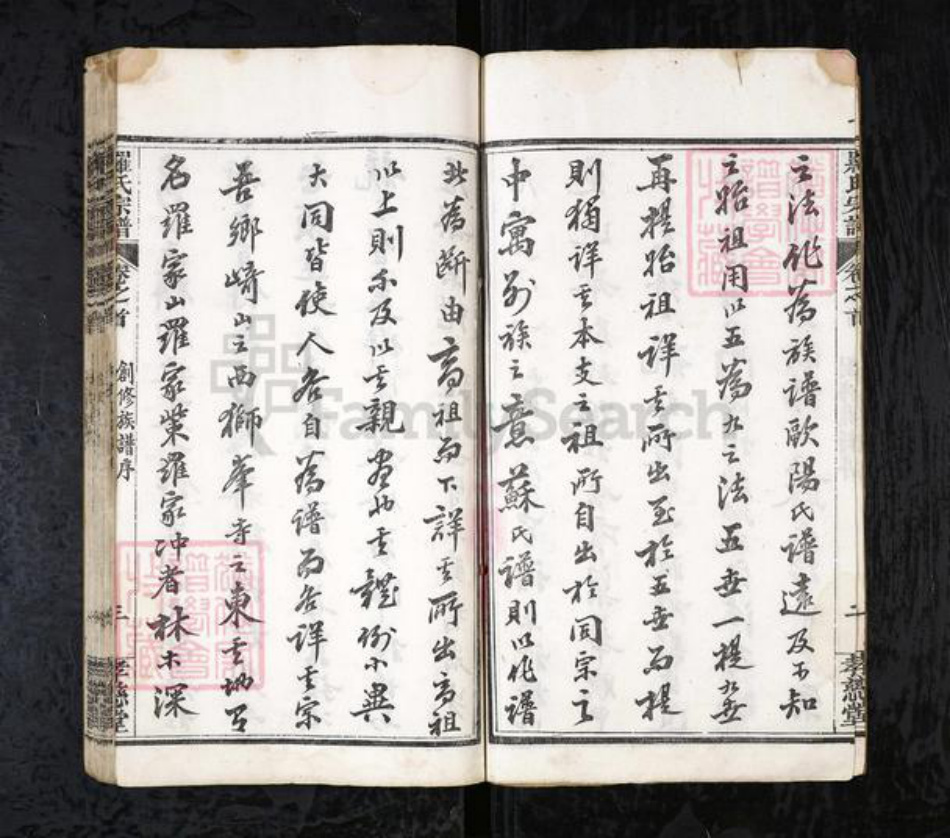 之法作為族譜歐陽氏譜遠及不知
之始祖用以五為九之法五世一提九世
再提始祖詳其所出至於五世而提
則猶詳其本支之祖所自出於同宗之
中寓別族之意蘇氏譜則以作譜
此為斷由高祖而下詳其所出高祖
以上則不及以其親盡也其體例小異
大同皆使人各自為譜而各詳其宗
吾鄉崎山之西獅峯寺之東其地有
名羅家山羅家集羅家冲者林木深
羅氏宗譜
卷之首
創修族譜序
三
孝慈堂
羅氏宗譜
卷之首
二
孝慈堂
FamilySearch